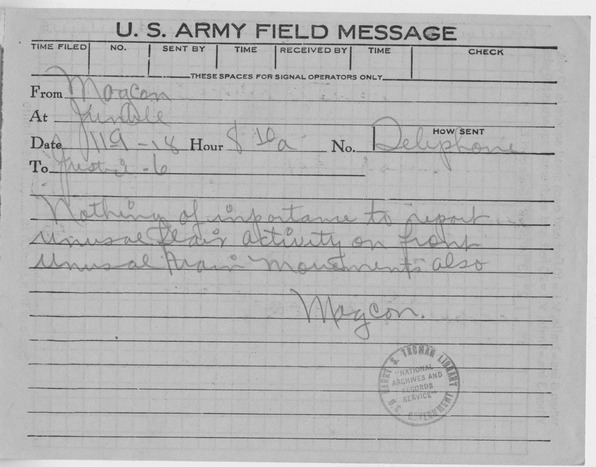 U. S. ARMY FIELD MESSAGE
TIME FILED NO. SENT BY TIME RECEIVED BY TIME CHECK
THESE SPACES FOR SIGNAL OPERATORS ONLY
From Magcon
At
Date 119-18 Hour 8 10a No. HOW SENT Telephone
To
Nothing of importance to report
unusal flair activity on front
unusal train movements also
Magcon.
HARRY S. TRUMAN LIBRARY
"NATIONAL
ARCHIVES AND
RECORDS
SERVICE"
U.S. GOVERNMENT